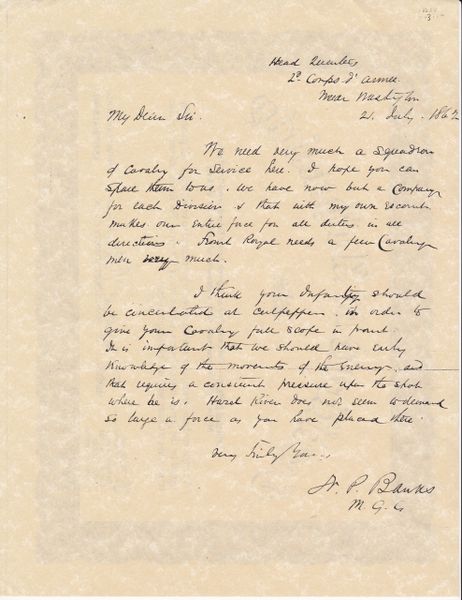 Head Quarters
2d Corps d' Armee
Near Washington
21 July. 1862
My Dear Sir.
We need very much a Squadron
of Cavalry for Service here. I hope you can
spare them to us. We have now but a Company
for each Division & that with my own Escort
makes our Entire force for all duties in all
directions. Front Royal needs a few Cavalry
men very much.
I think your Infantry should
be concentrated at Culpepper. in order to
give your Cavalry full scope in front.
It is important that we should have Early
Knowledge of the movements of the Enemy. and
that requires a constant pressure upon the spot
where he is. Hazel River does not seem to demand
so large a force as you have placed there.
Very Truly Yours
N. P. Banks
M. G. C